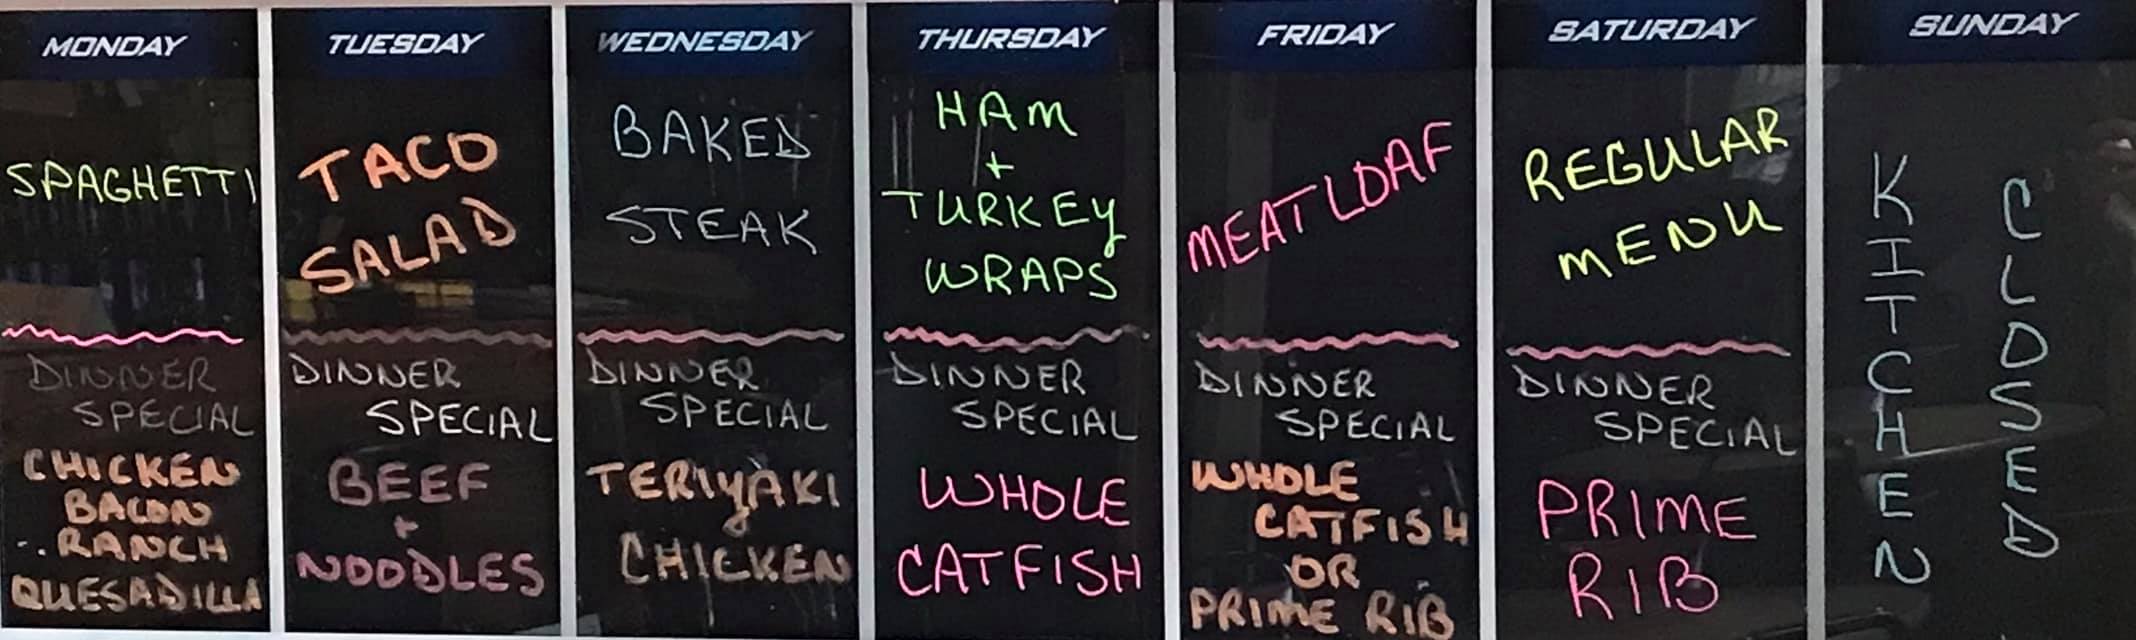 MONDAY
SPAGHETTI
DINNER
SPECIAL
CHICKEN
BACON
RANCH
QUESADILLA
TUESDAY
TACO
SALAD
DINNER
SPECIAL
BEEF
+
NOODLES
WEDNESDAY
BAKED
STEAK
DINNER
SPECIAL
TERIYAKI
CHICKEN
THURSDAY
HAM
+
TURKEY
WRAPS
DINNER
SPECIAL
WHOLE
CATFISH
FRIDAY
MEATLOAF
DINNER
SPECIAL
WHOLE
CATFISH
OR
PRIME RIB
SATURDAY
REGULAR
MENU
DINNER
SPECIAL
PRIME
RIB
SUNDAY
KITCHEN
CLOSED